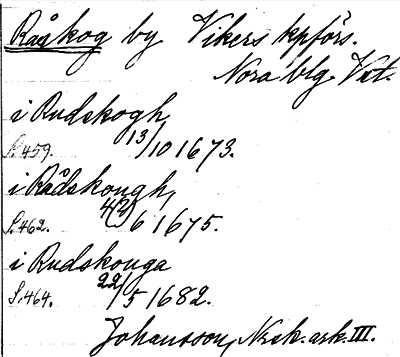 Raåskog by Vikers kpförs.
Nora blg. Vstm.
i Rudskogh,
S. 459. 13/10 1673.
i Rådskough,
S. 462. 4(?)/6 1675.
i Rudskouga
S. 464. 22/5 1682.
Johansson, Nsk. ark. III.